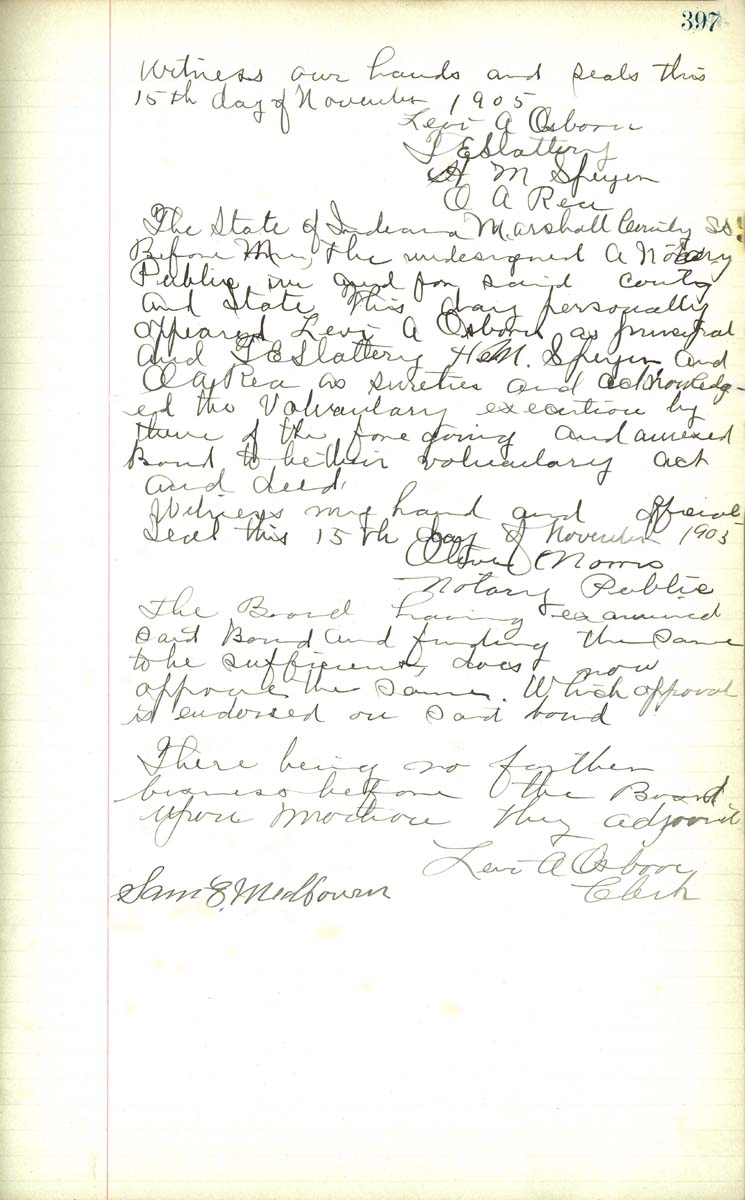 397
Witness our hands and seals this
15th day of November 1905
Levi A Osborn
T E Slattery
H M Speyer
O A Rea
The State of Indiana Marshall County SS:
Before Me, the undesigned A Notary
Public in and for said county
and State This day personally
appeared Levi A Osborn as principal
and T E Slattery H M. Speyer and
O A Rea as sureties and acknowledg-
ed the Voluntary execution by
them of the foregoing and annexed
Bond to be their voluntary act
and deed.
Witness my hand and official
Seal this 15th day of November 1905
Oliver Morris
Notary Public
The Board having examined
said Bond and finding the same
to be sufficient, does now
approve the same. Which approval
is endorsed on said bond
There being no further
business before the Board
upon motion they adjourn
Levi A Osborn
Clerk
Sam E. Medbourn